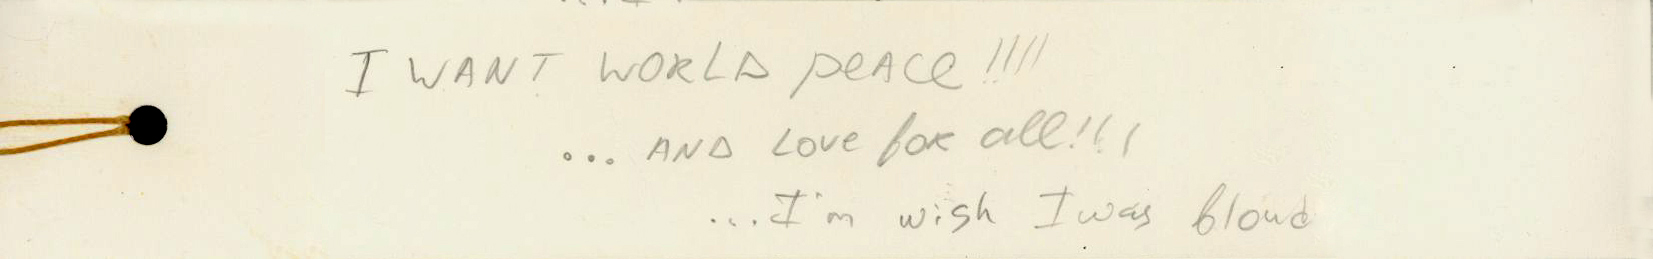 I WANT WORLD peACe !!!!
... AND Love foR all!!!
...I'm wish I was blond